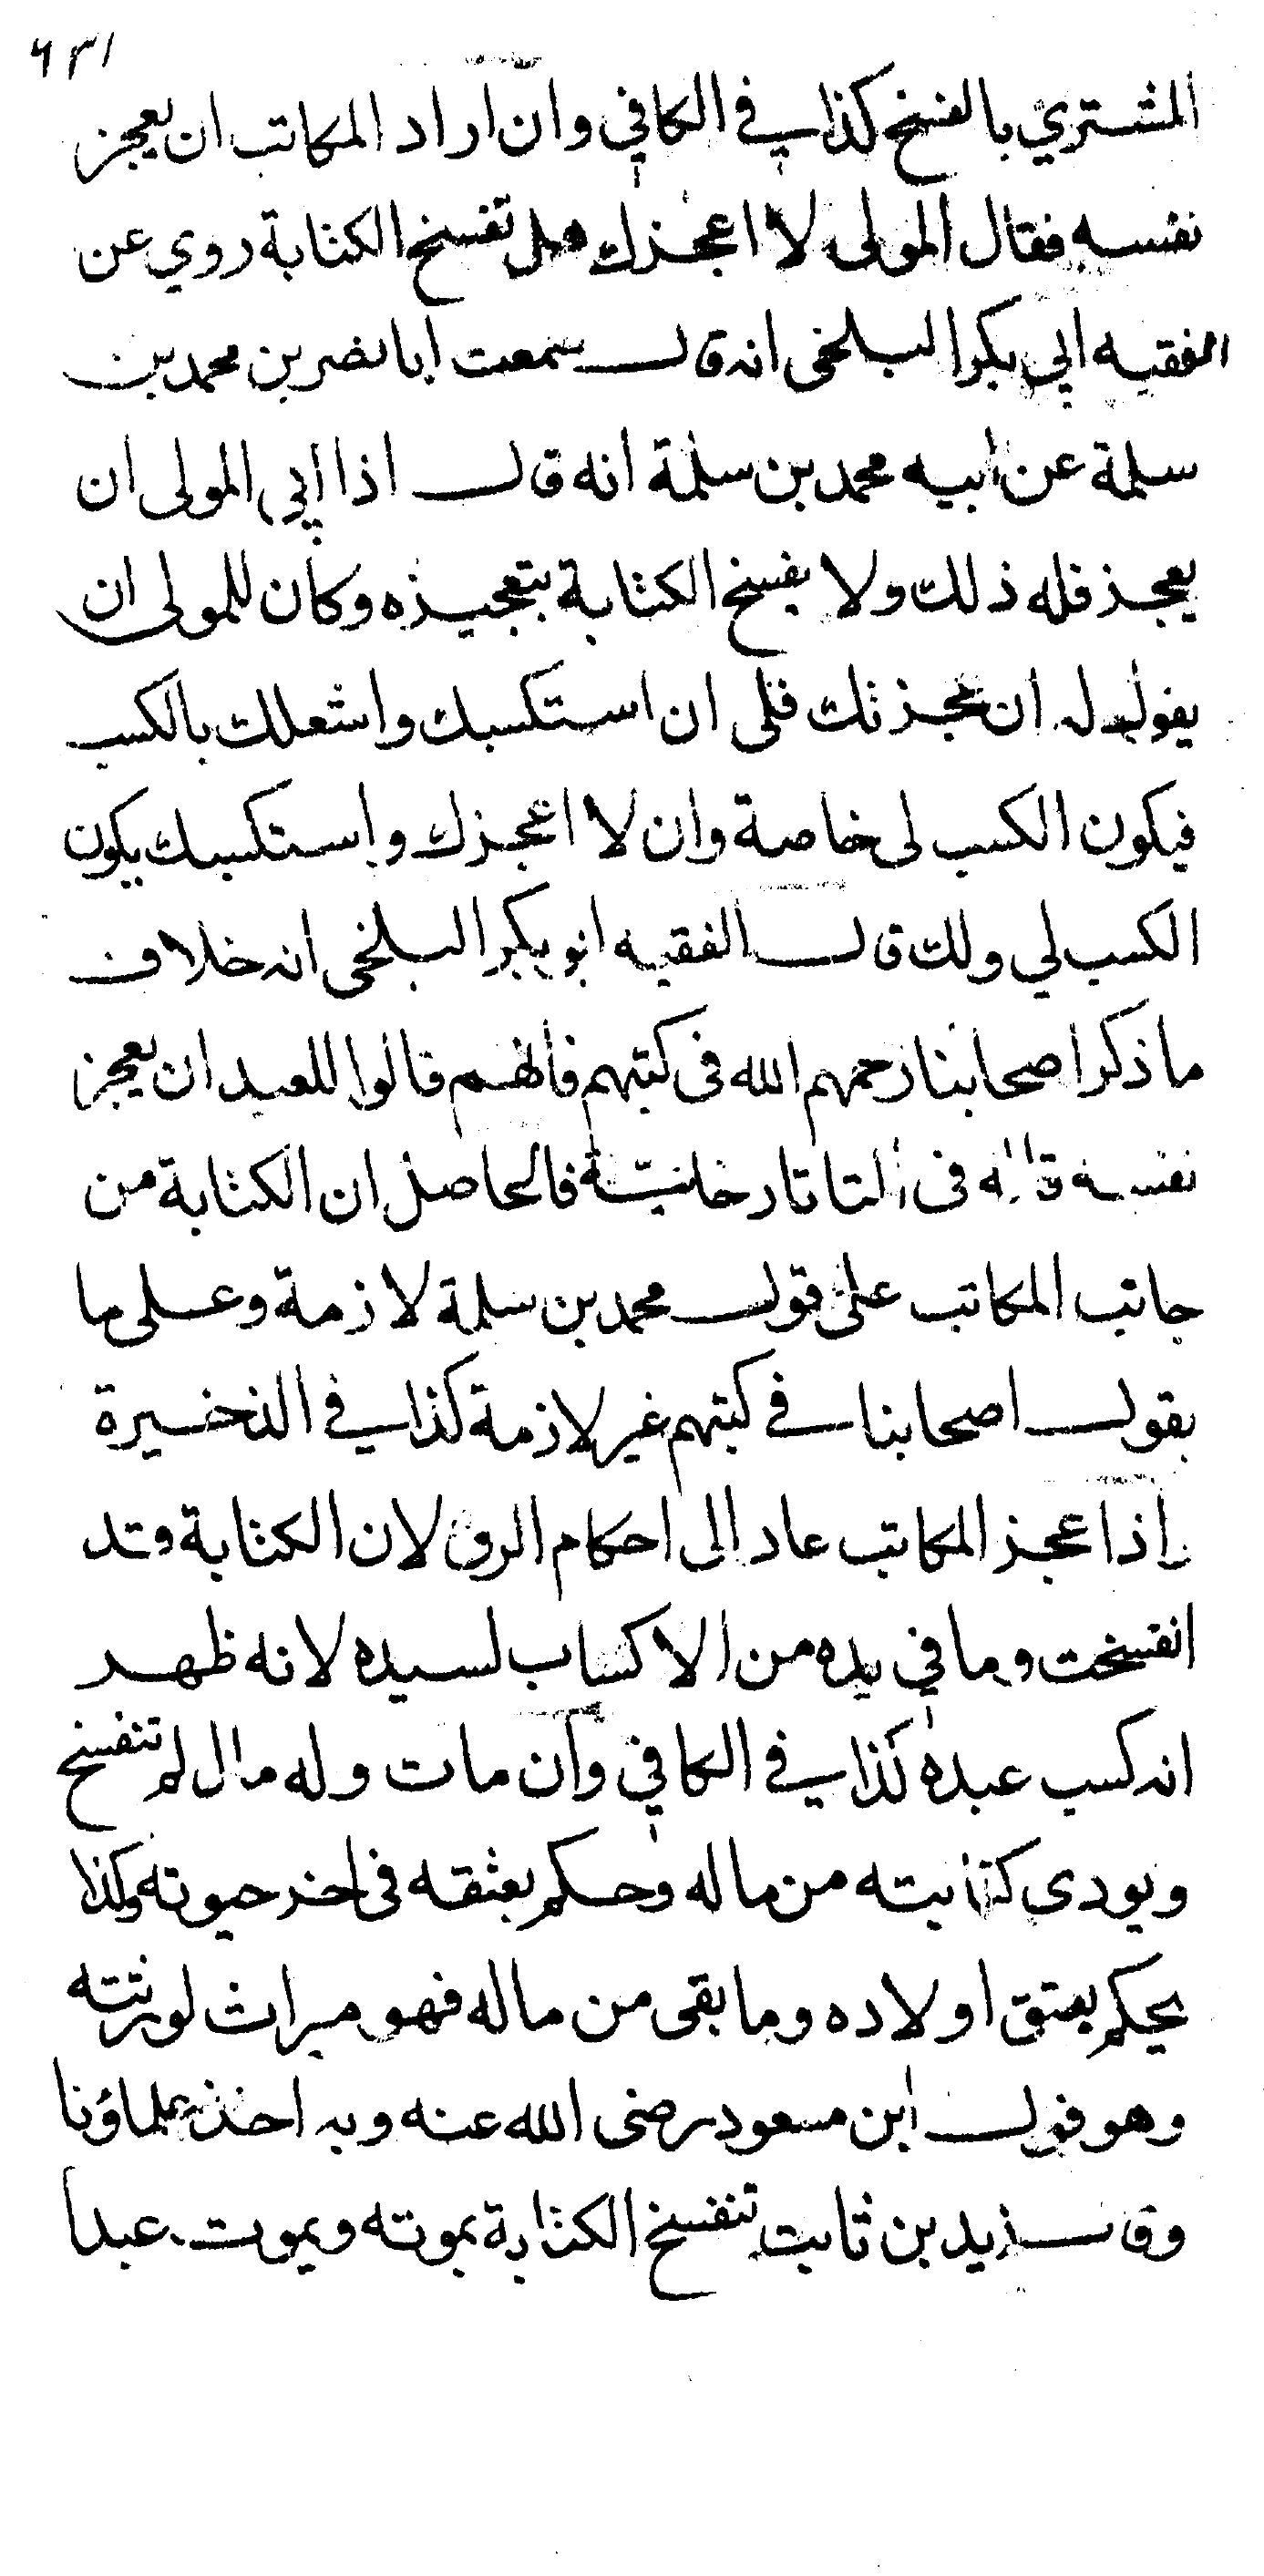 ٦٣١
المشتري بالفسخ كذا في الكافي وان اراد المكاتب ان يعجز
نفسه فقال المولى لا اعجزك هل تفسخ الكتابة روي عن
الفقيه ابي بكر البلخي انه قال سمعت ابا نصر بن محمد بن
سلمة عن ابيه محمد بن سلمة انه قال اذا ابي المولى ان
يعجز فله ذلك ولا يفسخ الكتابة بتعجيزه وكان للمولى ان
يقول له ان عجزتك فلى ان استكسبك واشعلك بالكسب
فيكون الكسب لى خاصة وان لا اعجزك واستكسبك يكون
الكسب لي ولك قال الفقيه ابو بكر البلخي انه خلاف
ما ذكر اصحابنا رحمهم الله فى كتبهم فانهم قالوا للعبد ان يعجز
نفسه قاله فى التاتارخانية فالحاصل ان الكتابة من
جانب المكاتب على قول محمد بن سلمة لازمة وعلى ما
يقول اصحابنا في كتبهم غير لازمة كذا في الذخيرة
اذا عجز المكاتب عاد الى احكام الرق لان الكتابة قد
انفسخت وما في يده من الاكساب لسيده لانه ظهر
انه كسب عبده كذا في الكافي وان مات وله مال لم تنفسخ
ويودى كتابته من ماله وحكم بعتقه فى اخر حيوته وكذا
يحكم بعتق اولاده وما بقى من ماله فهو ميراث لورثته
وهو قول ابن مسعود رضى الله عنه وبه اخذ علماؤنا
وقال زيد بن ثابت تنفسخ الكتابة بموته ويموت عبدا